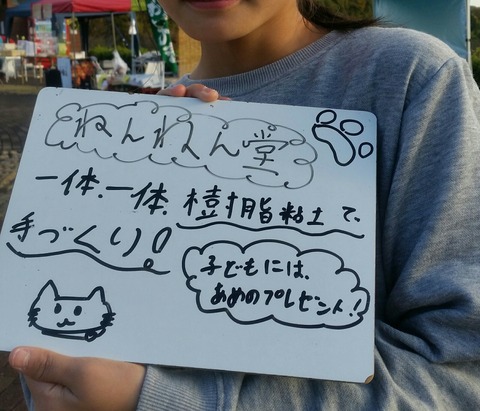 ねんねん堂
一体、一体、樹脂粘土で、
手づくり!
子どもには、
あめのプレゼント!